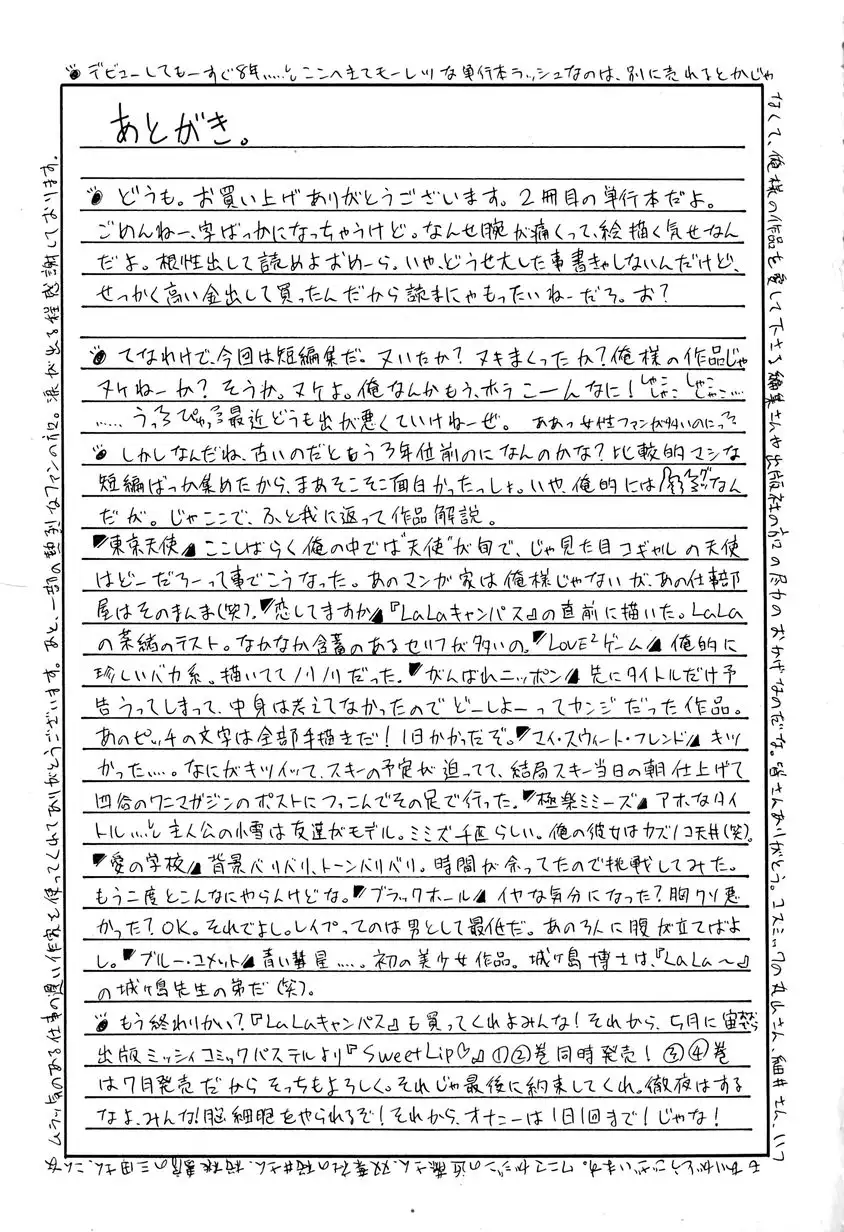 デビューしてもーすぐ8年……。ここへきてモーレツな単行本ラッシュなのは、別に売れるとかじゃ
なくて、俺様の作品を愛して下さる編集さんや出版社の方々の尽力のおかげなのだな。皆さんありがとう。コスミックの丸山さん、細井さん、いつ
もありがとうございます。ワニマガジンの近藤さん、双葉社の桜井さん、桜桃書房の三田さん、こんな
ムラッ気のある仕事の遅い作家を使ってくれてありがとうございます。あと、一部の熱烈なファンの方。涙が出る程感謝しております。
あとがき。
どうも。お買い上げありがとうございます。2冊目の単行本だよ。
ごめんねー、字ばっかになっちゃうけど。なんせ腕が痛くって、絵描く気せなん
だよ。根性出して読めよおめーら。いや、どうせ大した事書きゃしないんだけど、
せっかく高い金出して買ったんだから読まにゃもったいねーだろ。お?
てなわけで、今回は短編集だ。ヌいたか?ヌキまくったか?俺様の作品じゃ
ヌケねーか?そうか。ヌケよ。俺なんかもう、ホラこーんなに!しゃこしゃこしゃこしゃこ…
……うっ、ぴゅっ、最近どうも出が悪くていけねーぜ。ああっ女性ファンが多いのにっ
しかしなんだね、古いのだともう3年位前のになんのかな?比較的マシな
短編ばっか集めたから、まあそこそこ面白かったっしょ。いや、俺的には なん
だが。じゃここで、ふと我に返って作品解説。
『東京天使』ここしばらく俺の中では"天使"が旬で、じゃ見た目コギャルの天使
はどーだろーって事でこうなった。あのマンガ家は俺様じゃないが、あの仕事部
屋はそのまんま(笑)。『恋してますか』『LaLaキャンパス』の直前に描いた。LaLa
の菜緒のテスト。なかなか含蓄のあるセリフが多いの。『LOVE²ゲーム』俺的に
珍しいバカ系。描いててノリノリだった。『がんばれニッポン』先にタイトルだけ予
告うってしまって、中身は考えてなかったのでどーしよーってカンジだった作品。
あのピッチの文字は全部手描きだ!1日かかったぞ。『マイ・スウィート・フレンド』キツ
かった……。なにがキツイって、スキーの予定が迫ってて、結局スキー当日の朝仕上げて
四谷のワニマガジンのポストにつっこんでその足で行った。『極楽ミミーズ』アホなタイ
トル……。主人公の小雪は友達がモデル。ミミズ千匹らしい。俺の彼女はカズノコ天井(笑)。
『愛の学校』背景バリバリ、トーンバリバリ。時間が余ってたので挑戦してみた。
もう二度とこんなにやらんけどな。『ブラックホール』イヤな気分になった?胸クソ悪
かった?OK。それでよし。レイプってのは男として最低だ。あの3人に腹が立てばよ
し。『ブルー・コメット』青い彗星……。初の美少女作品。城ヶ島博士は、『LaLa〜』
の城ヶ島先生の弟だ(笑)。
もう終わりかい?『LaLaキャンパス』も買ってくれよみんな!それから、5月に宙
出版ミッシィコミックパステルより『Sweet Lip♡』①②巻同時発売!③④巻
は7月発売だからそっちもよろしく。それじゃ最後に約束してくれ。徹夜はする
なよ、みんな!脳細胞をやられるぞ!それから、オナニーは1日1回まで!じゃな!